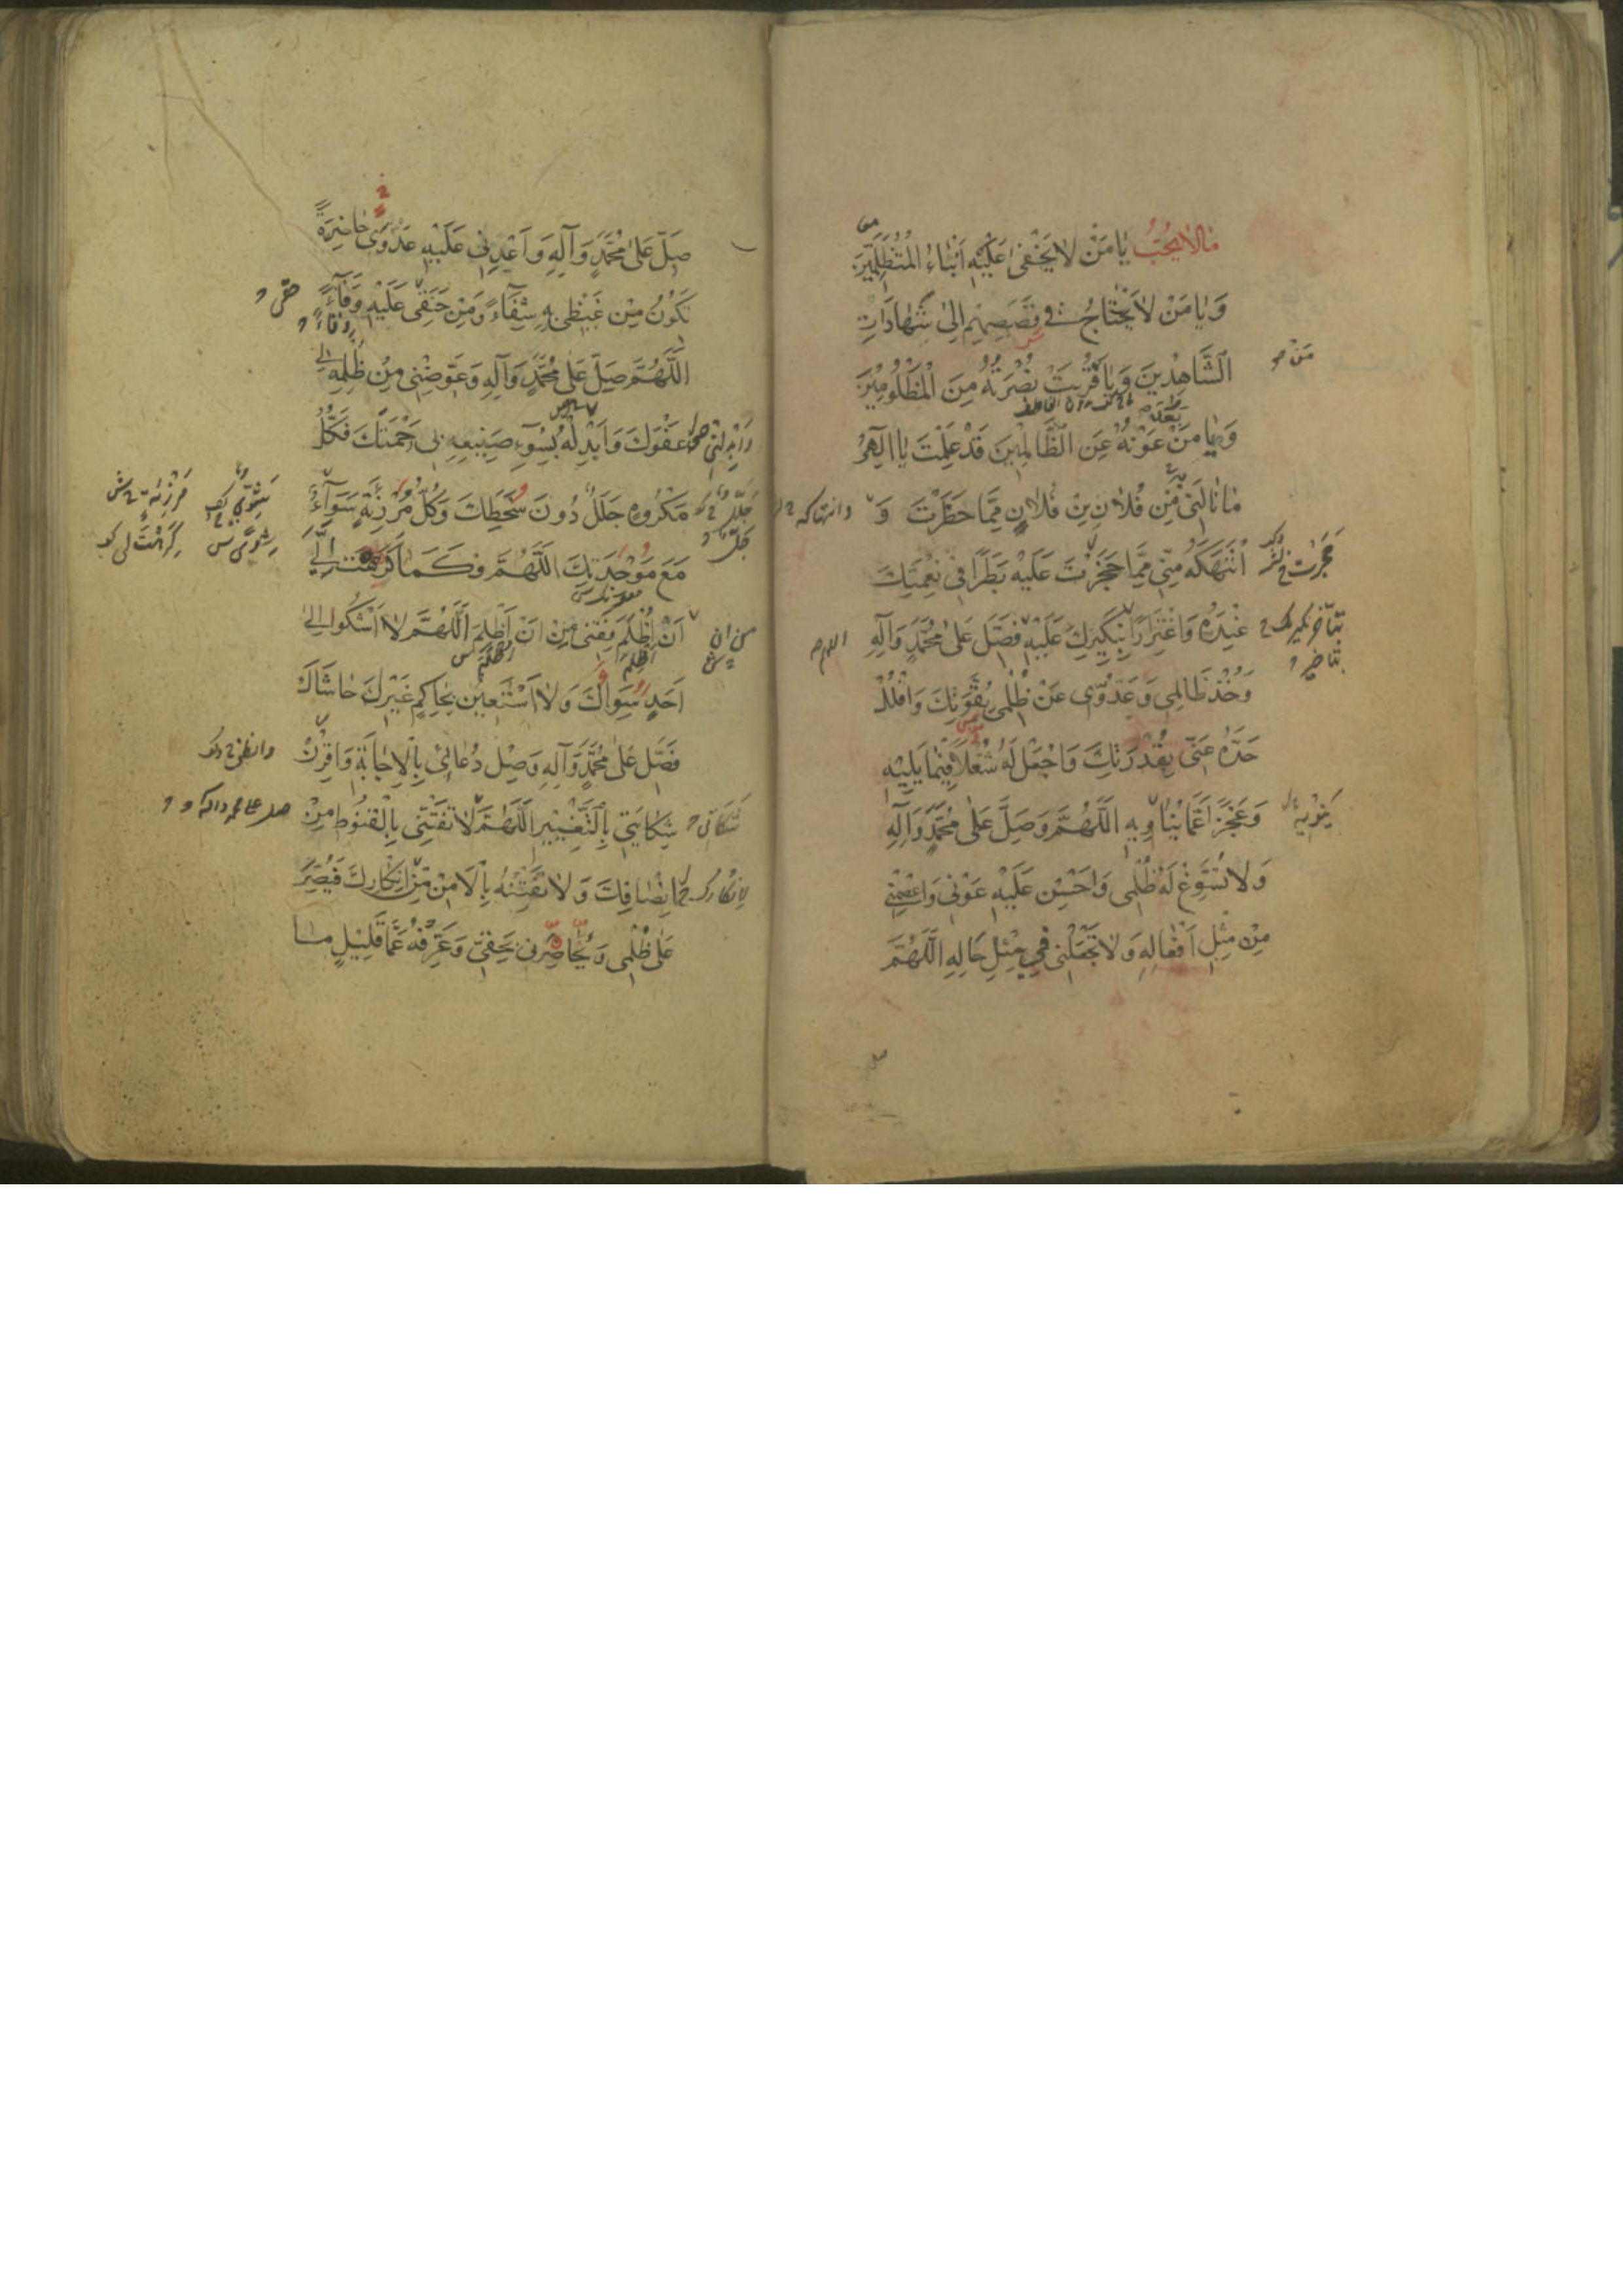 مالا يحب يا مَنْ لا يَخْفى عَلَيْهِ اَنْباءُ الْمُتَظَلِّمِينَ
وَيا مَنْ لا يَحْتاجُ فى قَصَصِهِمْ اِلى شَهاداتِ
الشَّاهِدينَ وَيا قَرُبَتْ نُصْرَتُهُ مِنَ الْمَظْلُومينَ
مَنْ
وَيا مَنْ بَعُدَ عَوْنُهُ عَنِ الظَّالِمينَ قَدْ عَلِمْتَ يا اِلهِى
ما نالَنى مِنْ فُلانِ بْنِ فُلانٍ مِمَّا حَظَرْتَ وَ
وانتهاكه
انْتَهَكَهُ مِنّى مِمَّا حَجَزْتَ عَلَيْهِ بَطَرًا فى نِعْمَتِكَ
عِنْدَهُ وَاغْتِرارًا بِنَكيرِكَ عَلَيْهِ فَصَلِّ عَلى مُحَمَّدٍ وَآلِهِ
اللهم
وَخُذْ ظالِمى وَعَدُوّى عَنْ ظُلْمى بِقُوَّتِكَ وَافْلُلْ
حَدَّهُ عَنّى بِقُدْرَتِكَ وَاجْعَلْ لَهُ شُغْلًا فيما يَليهِ
وَعَجْزًا عَمَّا يُناويهِ اللَّهُمَّ وَصَلِّ عَلى مُحَمَّدٍ وَآلِهِ
وَلا تُسَوِّغْ لَهُ ظُلْمى وَاَحْسِنْ عَلَيْهِ عَوْنى وَاعْصِمْنى
مِنْ مِثْلِ اَفْعالِهِ وَلا تَجْعَلْنى فى مِثْلِ حالِهِ اللَّهُمَّ
صَلِّ عَلى مُحَمَّدٍ وَآلِهِ وَاَعْدِنى عَلَيْهِ عَدْوًى حاضِرَةً
تَكُونُ مِنْ غَيْظى بِهِ شِفاءً وَمِنْ حَنَقى عَلَيْهِ وَفاءً
اللَّهُمَّ صَلِّ عَلى مُحَمَّدٍ وَآلِهِ وَعَوِّضْنى مِنْ ظُلْمِهِ لى
عَفْوَكَ وَاَبْدِلْهُ بِسُوءِ صَنيعِهِ بى رَحْمَتَكَ فَكُلُّ
وابدلنى
مَكْرُوهٍ جَلَلٌ دُونَ سَخَطِكَ وَكُلُّ مُرْزِئَةٍ سَواءٌ
مَعَ مَوْجِدَتِكَ اللَّهُمَّ فَكَما كَرَّهْتَ اِلَىَّ
اَنْ اُظْلَمَ فَقِنى مِنْ اَنْ اَظْلِمَ اللَّهُمَّ لا اَشْكُوا اِلى
من ان
اَحَدٍ سِواكَ وَلا اَسْتَعينُ بِحاكِمٍ غَيْرِكَ حاشاكَ
فَصَلِّ عَلى مُحَمَّدٍ وَآلِهِ وَصِلْ دُعائى بِالْاِجابَةِ وَاقْرِنْ
شِكايَتى بِالتَّغْييرِ اللَّهُمَّ لا تَفْتِنّى بِالْقُنُوطِ مِنْ
صل على محمد واله
اِنْصافِكَ وَلا تَفْتِنْهُ بِالْاَمْنِ مِنْ اِنْكارِكَ فَيُصِرَّ
عَلى ظُلْمى وَيُحاضِرَنى بِحَقّى وَعَرِّفْهُ عَمَّا قَليلٍ ما